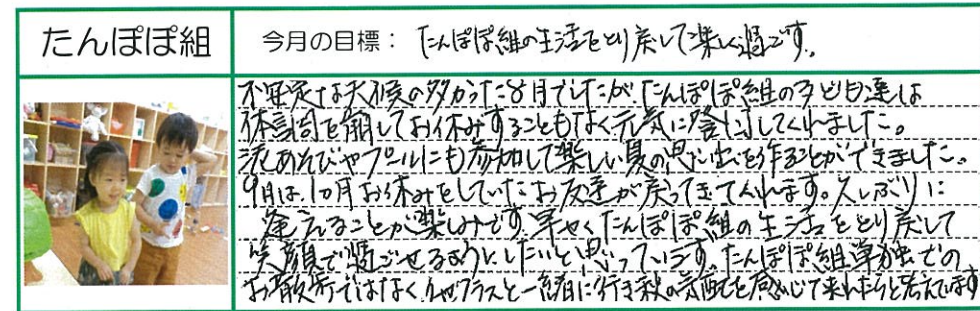 たんぽぽ組
今月の目標： たんぽぽ組の生活をとり戻して楽しく過ごす。
不安定な天候の多かった8月でしたが、たんぽぽ組の子ども達は
体調を崩してお休みすることもなく元気に登園してくれました。
泥あそびやプールにも参加して楽しい夏の思い出を作ることができました。
9月は、1ヶ月お休みをしていたお友達が戻ってきてくれます。久しぶりに
逢えることが楽しみです。早くたんぽぽ組の生活をとり戻して
笑顔で過ごせるようにしたいと思っています。たんぽぽ組単独での
お散歩ではなく、他クラスと一緒に行き秋の気配を感じて来れたらと考えています